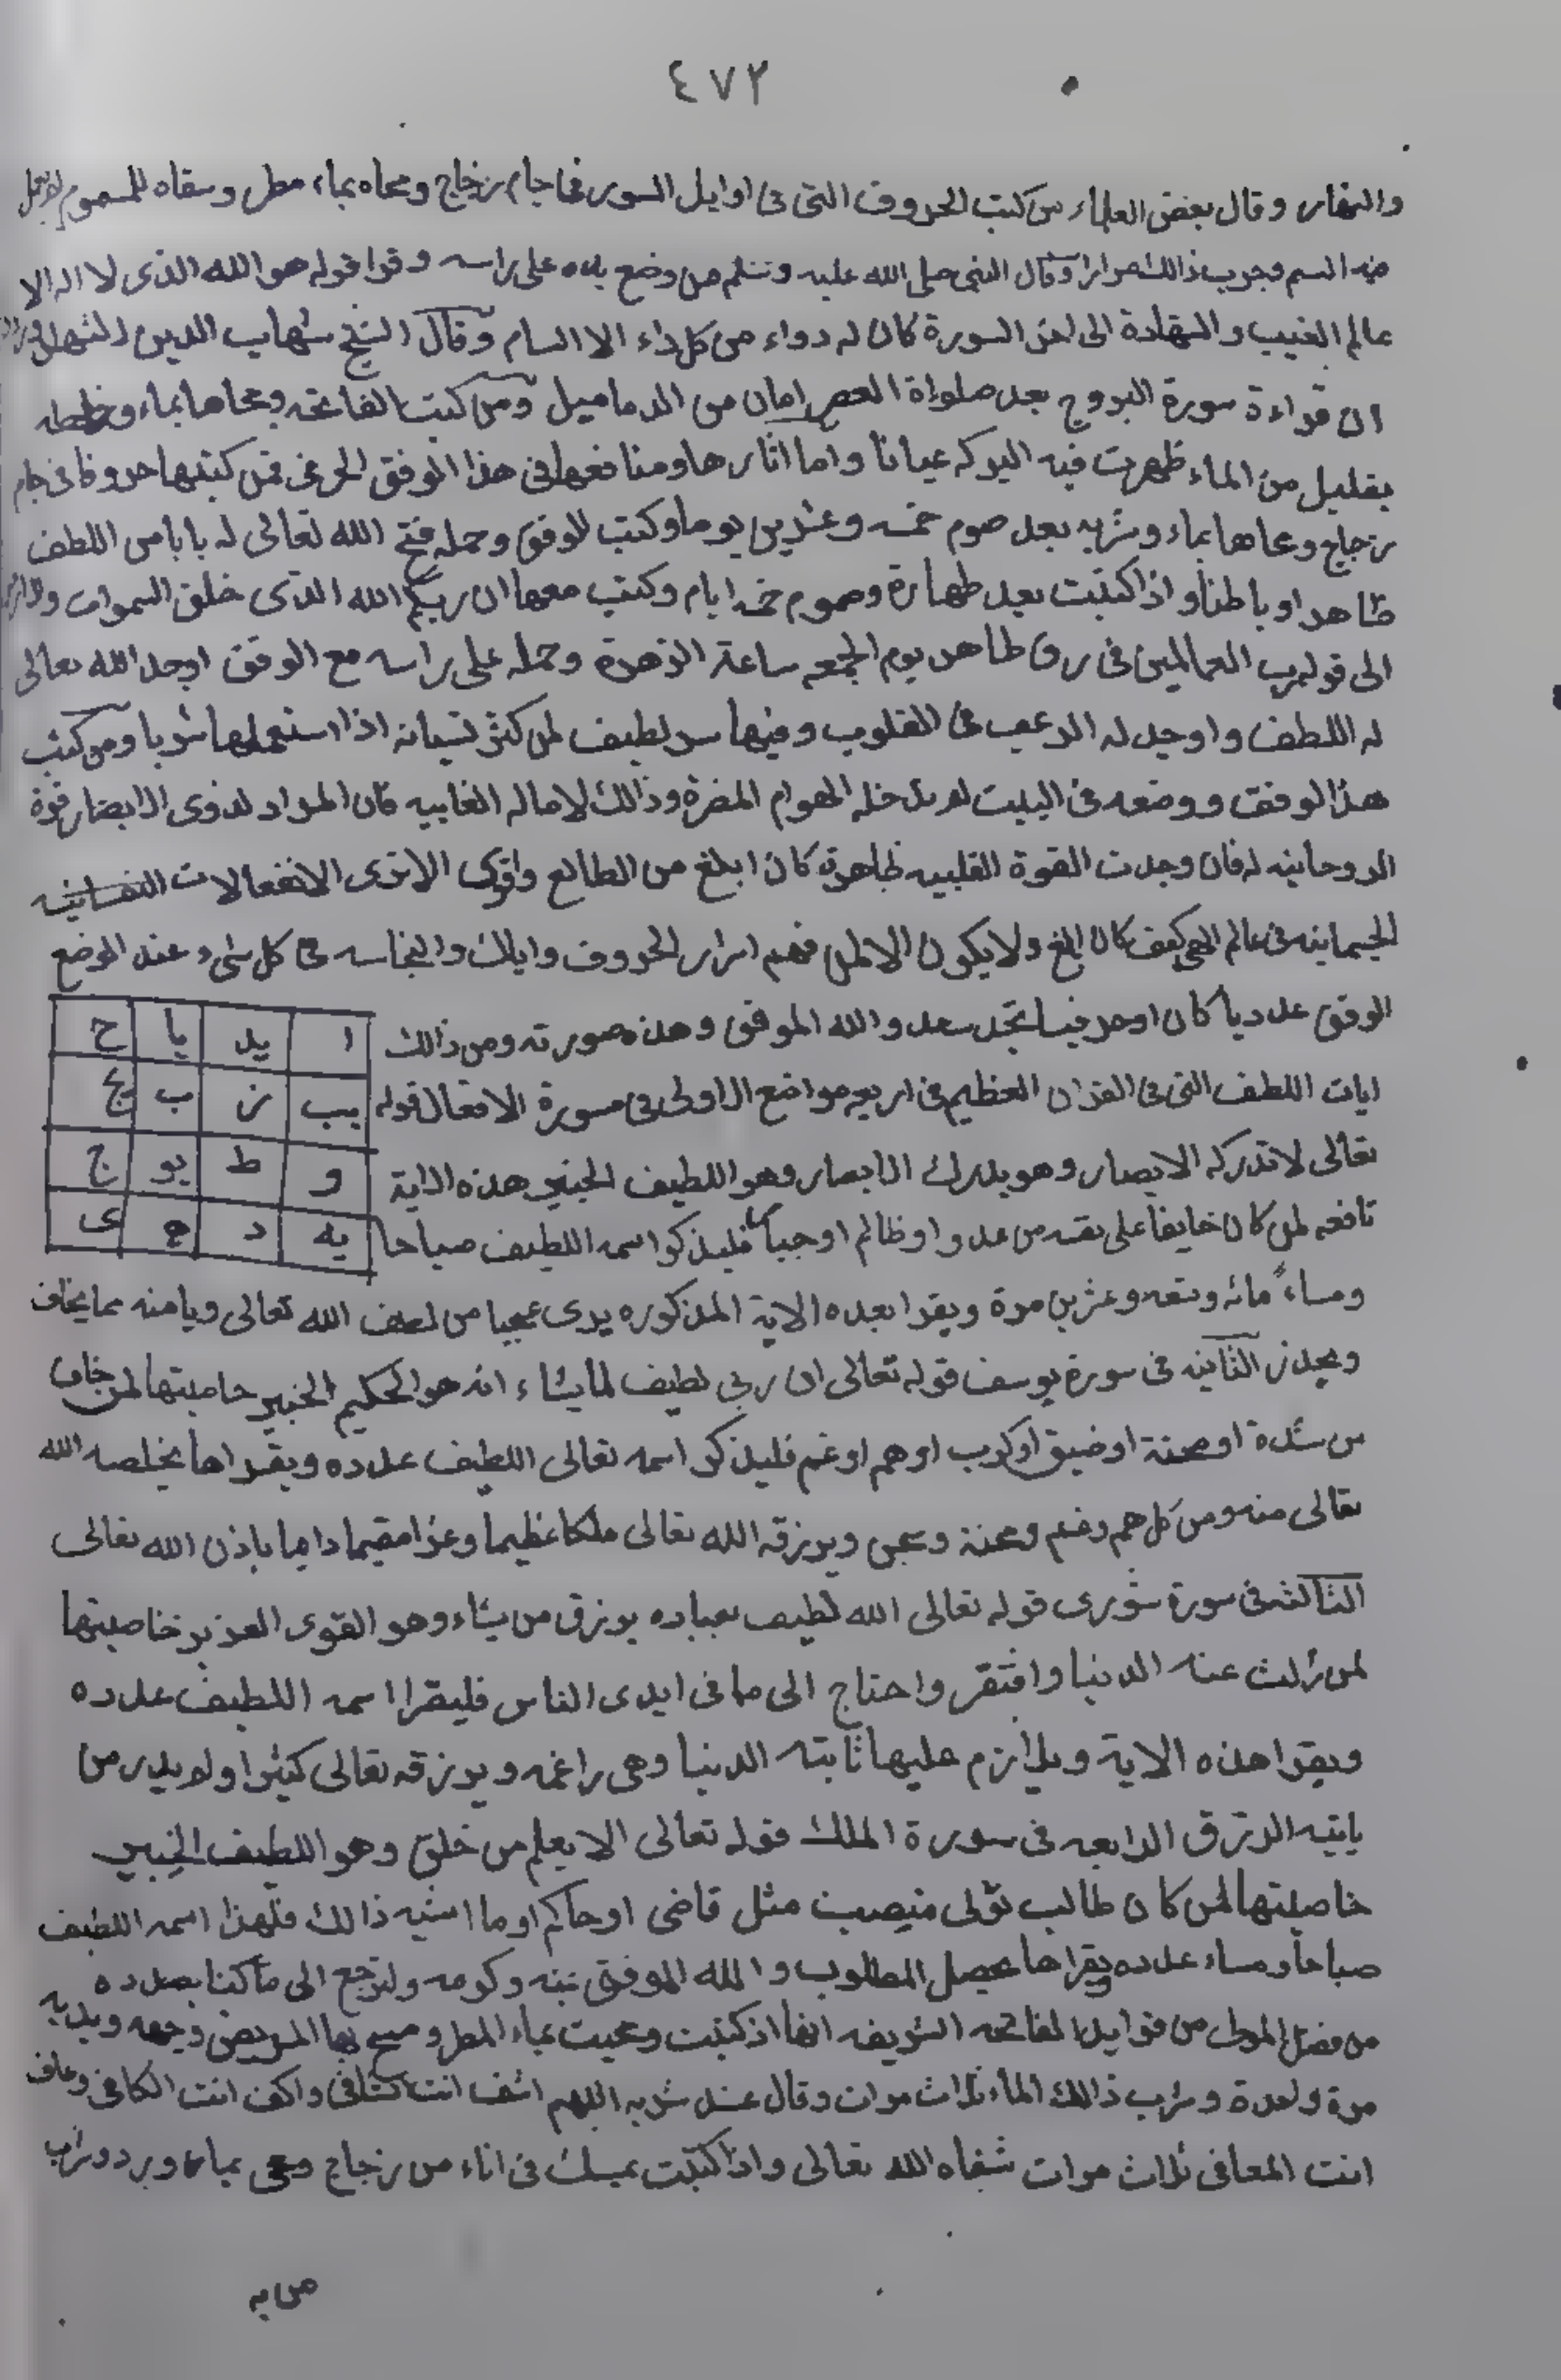 ٤٧٢
والنهار وقال بعض العلماء من كتب الحروف التى فى اوايل السور فى جام زجاج ومحاه بماء مطر وسقاه للمسموم
منه السم وجرب ذالك مرارا وقال النبى صلى الله عليه وسلم من وضع يده على راسه وقرا قوله هو الله الذى لا اله الا
عالم الغيب والشهادة الى اخر السورة كان له دواء من كل داء الا السام وقال الشيخ شهاب الدين
ان قراءة سورة البروج بعد صلواة العصر امان من الدماميل ومن كتب الفاتحه ومحاها بماء وخلطه
بقليل من الماء ظهرت فيه البركه عيانا واما اثارها ومنافعها فى هذا الوفق الحرفى فمن كتبها حروفا فى جام
زجاج ومحاها بماء وشربه بعد صوم خمسه وعشرين يوما وكتب الوفق وحمله فتح الله تعالى له بابا من اللطف
ظاهرا وباطنا واذا كتبت بعد طهارة وصوم خمسه ايام وكتب معها ان ربكم الله الذى خلق السموات والارض
الى قوله رب العالمين فى رق طاهر يوم الجمعه ساعة الزهرة وحمله على راسه مع الوفق اوجد الله تعالى
له اللطف واوجد له الرعب فى القلوب وفيها سر لطيف لمن كثر نسيانه اذا استعملها شربا ومن كتب
هذا الوفق ووضعه فى البيت لم تدخله الهوام المضرة وذالك لاماله الغايبه فان المراد لذوى الابصار قوة
الروحانيه له فان وجدت القوة القلبيه ظاهرة كان ابلغ من الطالع واقوى الا ترى الانفعالات النفسانيه
الجسمانيه فى عالم كيف كان ابلغ ولا يكون الا لمن فهم اسرار الحروف واياك والنجاسه فى كل شىء وعند الوضع
الوفق عدديا كان او حرفيا تجد سعد والله الموفق وهذه صورته ومن ذالك
ا يد يا ح
يب ز ب يج
و ط يو ج
يه د ه ى
ايات اللطف التى فى القران العظيم فى اربعه مواضع الاولى فى سورة الانعام قوله
تعالى لا تدركه الابصار وهو يدرك الابصار وهو اللطيف الخبير هذه الاية
نافعه لمن كان خايفا على نفسه من عدو او ظالم او جبار فليذكر اسمه اللطيف صباحا
ومساء مائه وتسعه وعشرين مرة ويقرا بعده الاية المذكوره يرى عجبا من لطف الله تعالى ويامنه مما يخاف
ويحذر الثانيه فى سورة يوسف قوله تعالى ان ربى لطيف لما يشاء انه هو الحكيم الخبير خاصيتها لمن خاف
من شدة او محنة او ضيق او كرب او هم او غم فليذكر اسمه تعالى اللطيف عدده ويقراها يخلصه الله
تعالى منه ومن كل هم وغم ومحنة وسجن ويرزقه الله تعالى ملكا عظيما وعزا مقيما دايما باذن الله تعالى
الثالثه فى سورة شورى قوله تعالى الله لطيف بعباده يرزق من يشاء وهو القوى العزيز خاصيتها
لمن زالت عنه الدنيا وافتقر واحتاج الى ما فى ايدى الناس فليقرا اسمه اللطيف عدده
ويقرا هذه الاية ويلازم عليها تاتيه الدنيا وهى راغمه ويرزقه تعالى كثيرا ولم يدر من
ياتيه الرزق الرابعه فى سورة الملك قوله تعالى الا يعلم من خلق وهو اللطيف الخبير
خاصيتها لمن كان طالب تولى منصب مثل قاضى او حاكم او ما اشبه ذالك فلهذا اسمه اللطيف
صباحا ومساء عدده ويقراها يحصل المطلوب والله الموفق بمنه وكرمه ولنرجع الى ما كنا بصدده
من فضل المولى من فوايد الفاتحه الشريفه انها اذ كتبت ومحيت بماء المطر ومسح بها المريض وجهه ويديه
مرة واحدة وشرب ذالك الماء ثلاث مرات وقال عند شربه اللهم اشف انت الشافى واكف انت الكافى وعاف
انت المعافى ثلاث مرات شفاه الله تعالى واذا كتبت بمسك فى اناء من زجاج ومحى بماء ورد وشرب
من به